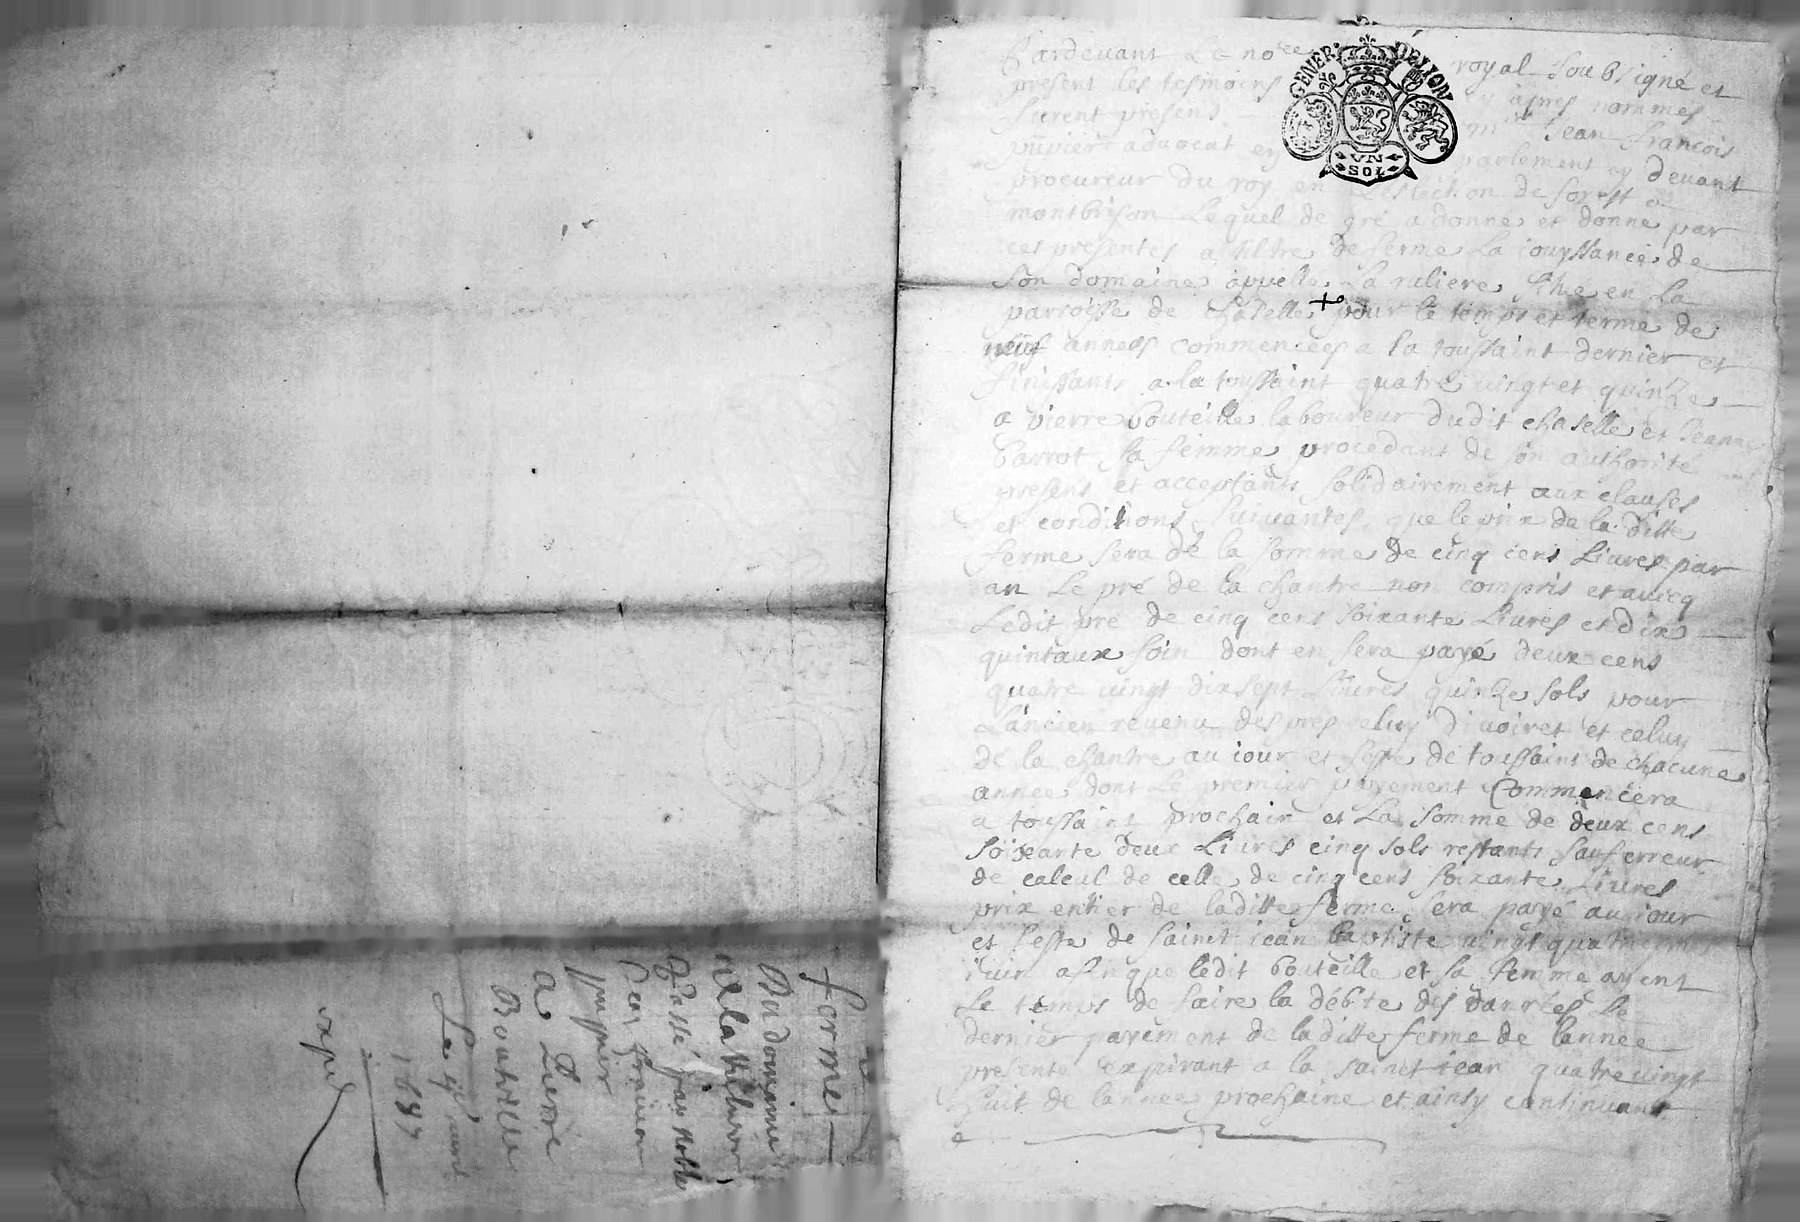 ferme
Du domaine
de la
Passé par noble
Jean françois
puÿuier
A Pierre
Bouteille
Le
1687
expé
GENER. DE LION
VN
SOL
Pardevant Le no.re royal Soubsigné et
present les tesmoins cy apres nommes
furent presens m.re Jean françois
puvier advocat en parlement cy devant
procureur du roy en L'eslection de forest a
montbrison Lequel de gré a donné et donne par
ces presentes a tiltre de ferme La iouyssance de
son domaine appellé La ruliere, size en La
parroisse de chaselle + pour le temps et terme de
neuf années commencées a la toussaint dernier et
finissants a la toussaint quatre vingt et quinze
a pierre bouteille laboureur dudit chaselle et Jeanne
Parrot sa femme procedant de son authorité
presens et acceptants solidairement aux clauses
et conditions suivantes, que le prix de la ditte
ferme sera de la somme de cinq cens Livres par
an Le pré de la chantre non compris et avecq
Ledit pré de cinq cens soixante Livres et dix
quintaux foin dont en sera payé deux cens
quatre vingt dix sept Livres quinze sols pour
L'ancien revenu des prés celuy d'ivoiret et celuy
de la chantre au iour et feste de toussaint de chacune
année dont Le premier payement Commencera
a toussaint prochain et La somme de deux cens
soixante deux Livres cinq sols restants sauf erreur
de calcul de celle de cinq cens soixante Livres
prix entier de laditte ferme sera payé au iour
et feste de sainct iean baptiste vingt quatriesme
iuin afin que ledit bouteille et sa femme ayent
Le temps de faire la débite des danrées Le
dernier payement de laditte ferme de lannée
presente expirant a la sainct iean quatre vingt
huit de lannée prochaine et ainsy continuant